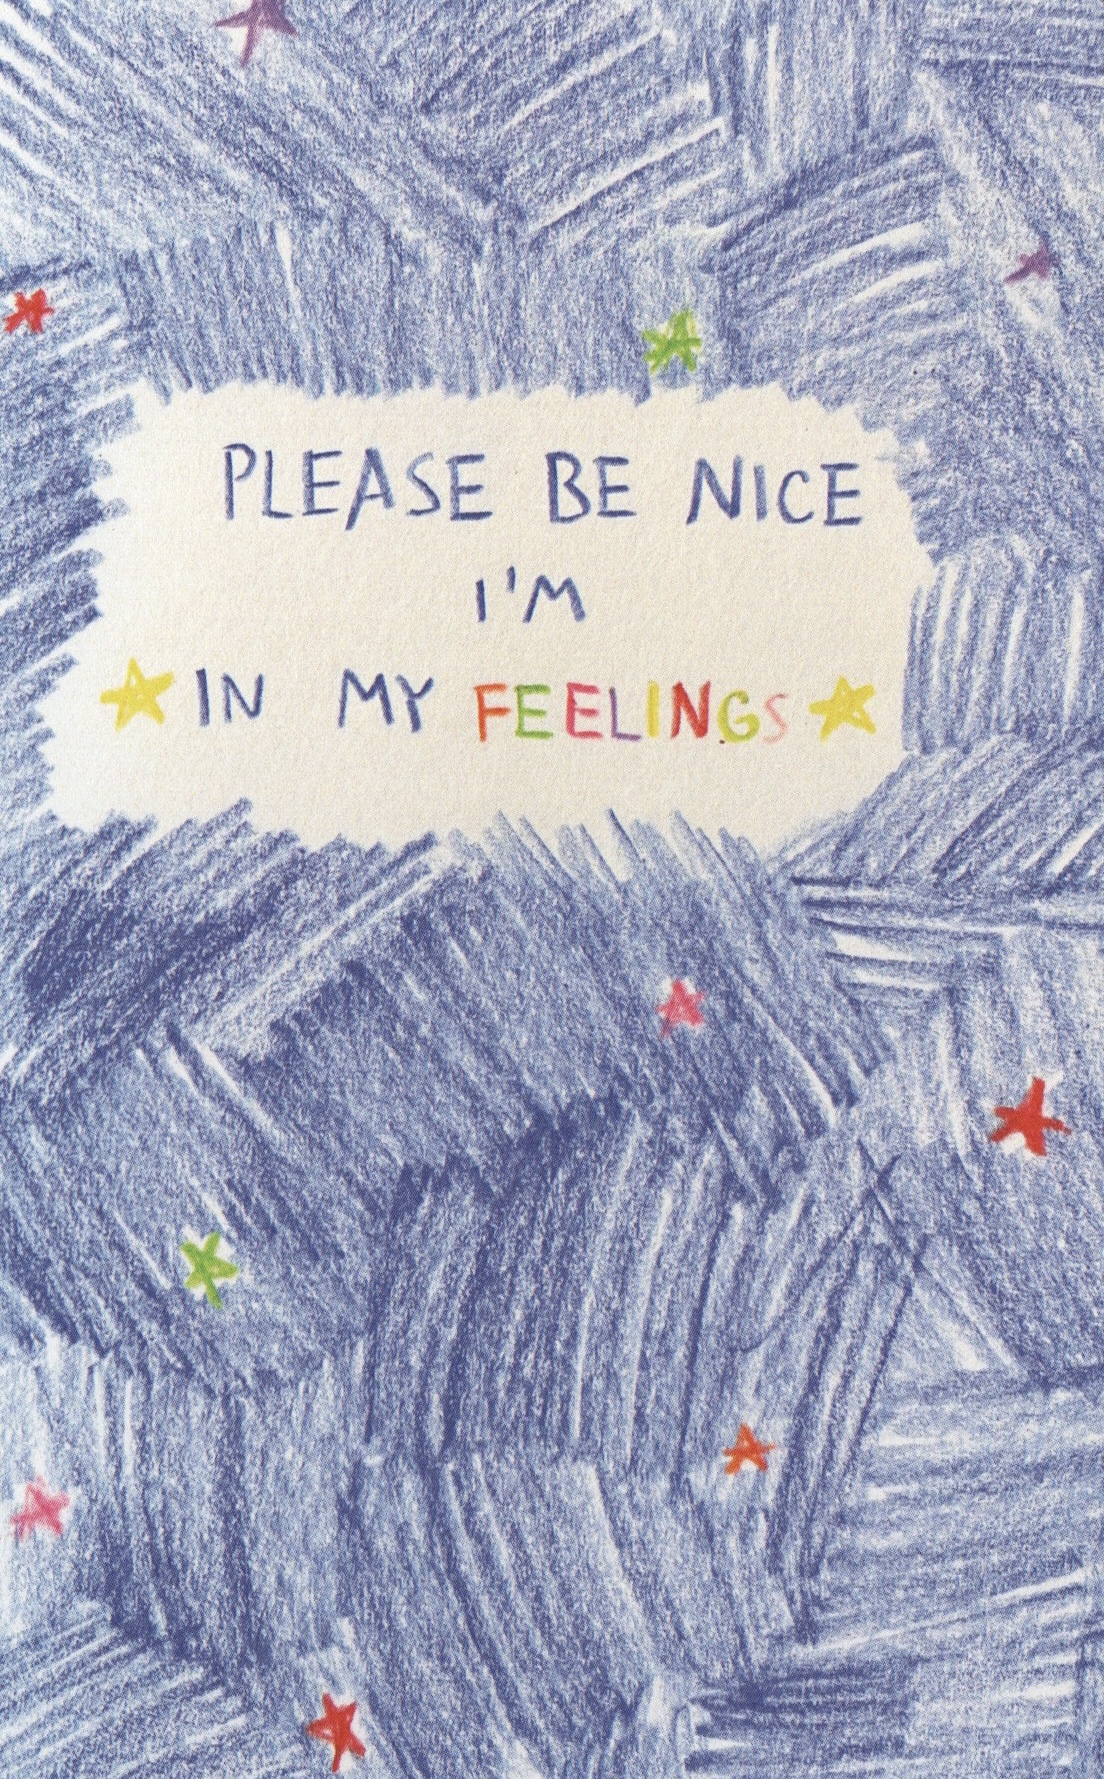 PLEASE BE NICE
I'M
IN MY FEELINGS